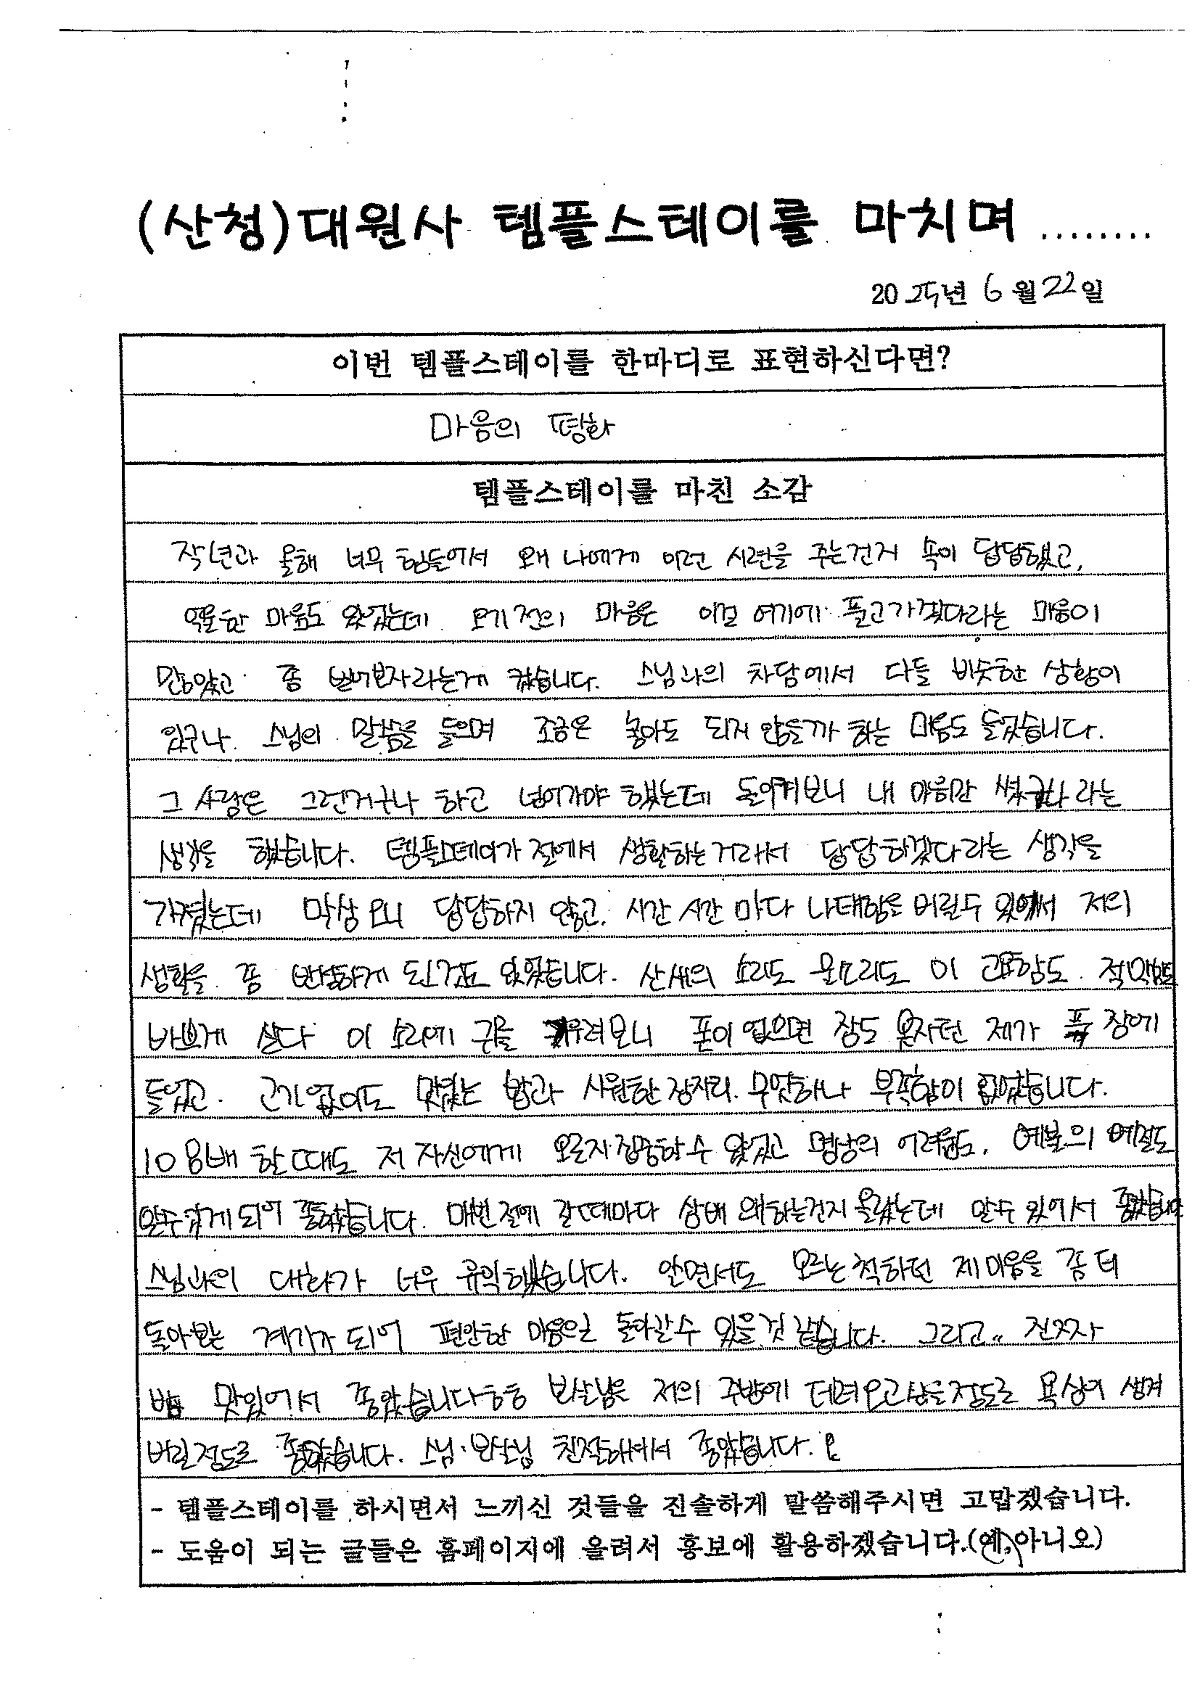 (산청)대원사 템플스테이를 마치며........
2025년 6월 22일
이번 템플스테이를 한마디로 표현하신다면?
마음의 평화
템플스테이를 마친 소감
작년과 올해 너무 힘들어서 왜 나에게 이런 시련을 주는건지 속이 답답했고,
억울한 마음도 있었는데 오기전의 마음은 이걸 여기에 풀고가겠다라는 마음이
많았고 좀 버려보자라는게 컸습니다. 스님과의 차담에서 다들 비슷한 상황이
있구나. 스님의 말씀을 들으며 조금은 놓아도 되지 않을까 하는 마음도 들었습니다.
그 사람은 그런거구나 하고 넘어가야 했는데 돌이켜보니 내 마음만 썼구나 라는
생각을 했습니다. 템플스테이가 절에서 생활하는거라서 답답하겠다라는 생각을
가졌는데 막상 오니 답답하지 않고, 시간 시간 마다 나태함을 버릴수 있어서 저의
생활을 좀 반성하게 된것도 있었습니다. 산새의 소리도 물소리도 이 고요함도 적막함도
바쁘게 살다 이 소리에 귀를 기울여보니 폰이 없으면 잠도 못자던 제가 푹 잠에
들었고. 고기없이도 맛있는 밥과 시원한 잠자리. 무엇하나 부족함이 없었습니다.
108배 한때도 저 자신에게 오로지 집중할수 있었고 명상의 어려움도, 예불의 예절도
알수있게 되어 좋았습니다. 매번 절에 갈때마다 삼배 왜하는건지 몰랐는데 알수 있어서 좋았습니다
스님과의 대화가 너무 유익했습니다. 알면서도 모르는척하던 제마음을 좀 더
돌아보는 계기가 되어 편안한 마음으로 돌아갈수 있을것 같습니다. 그리고.. 진짜
밥 맛있어서 좋았습니다ㅎㅎ 보살님을 저의 주방에 데려오고싶을정도로 욕심이 생겨
버릴정도로 좋았습니다. 스님·보살님 친절해서 좋았습니다.
- 템플스테이를 하시면서 느끼신 것들을 진솔하게 말씀해주시면 고맙겠습니다.
- 도움이 되는 글들은 홈페이지에 올려서 홍보에 활용하겠습니다.(예,아니오)